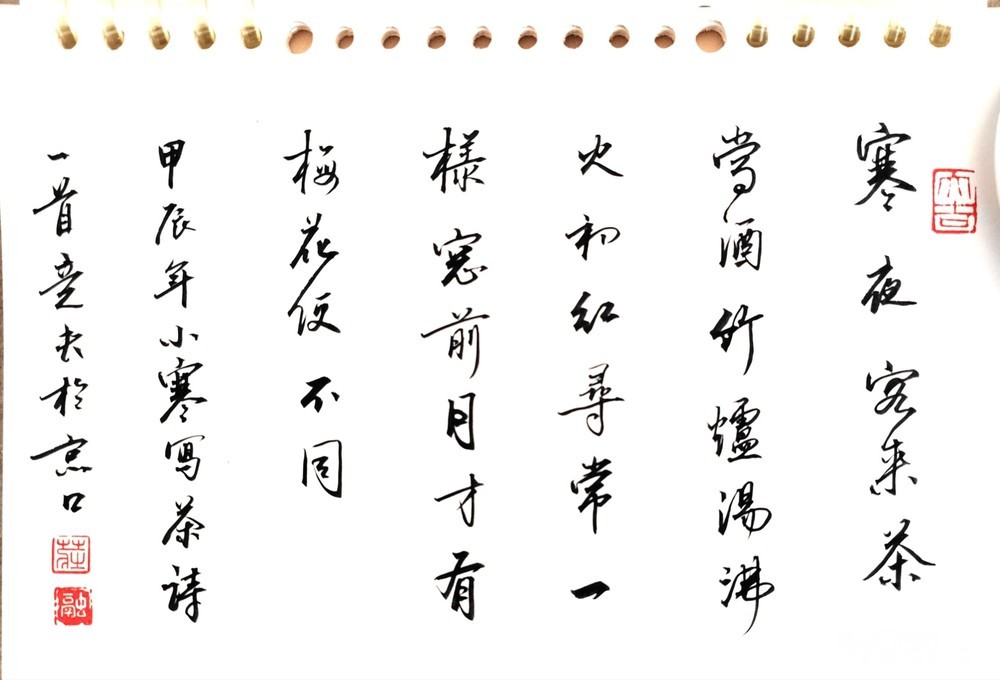 大吉
寒夜客来茶
當酒竹爐湯沸
火初紅尋常一
樣窓前月才有
梅花便不同
甲辰年小寒寫茶詩
一首 於京口
融